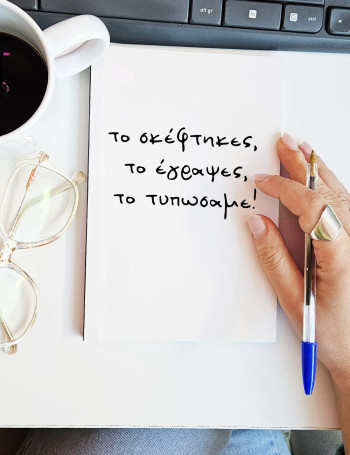 το σκέφτηκες,
το έγραψες,
το τυπωσαμε!
alt gr
ctrl